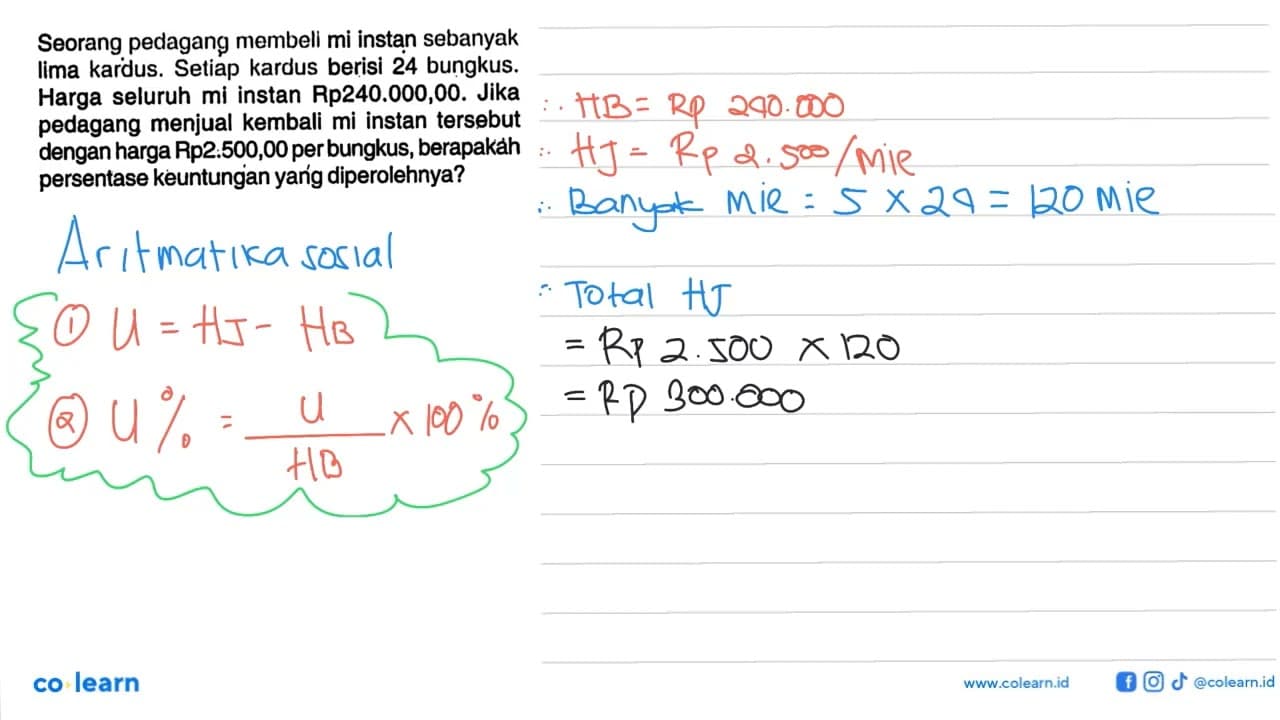 Seorang pedagang membeli mi instan sebanyak
lima kardus. Setiap kardus berisi 24 bungkus.
Harga seluruh mi instan Rp240.000,00. Jika
pedagang menjual kembali mi instan tersebut
dengan harga Rp2.500,00 per bungkus, berapakah
persentase keuntungan yang diperolehnya?
Aritmatika sosial
① U = HJ - HB
② U% = U / HB × 100%
∴ HB = Rp 240.000
∴ HJ = Rp 2.500/Mie
∴ Banyak Mie = 5 × 24 = 120 Mie
∴ Total HJ
= Rp 2.500 × 120
= Rp 300.000
co learn
www.colearn.id
@colearn.id